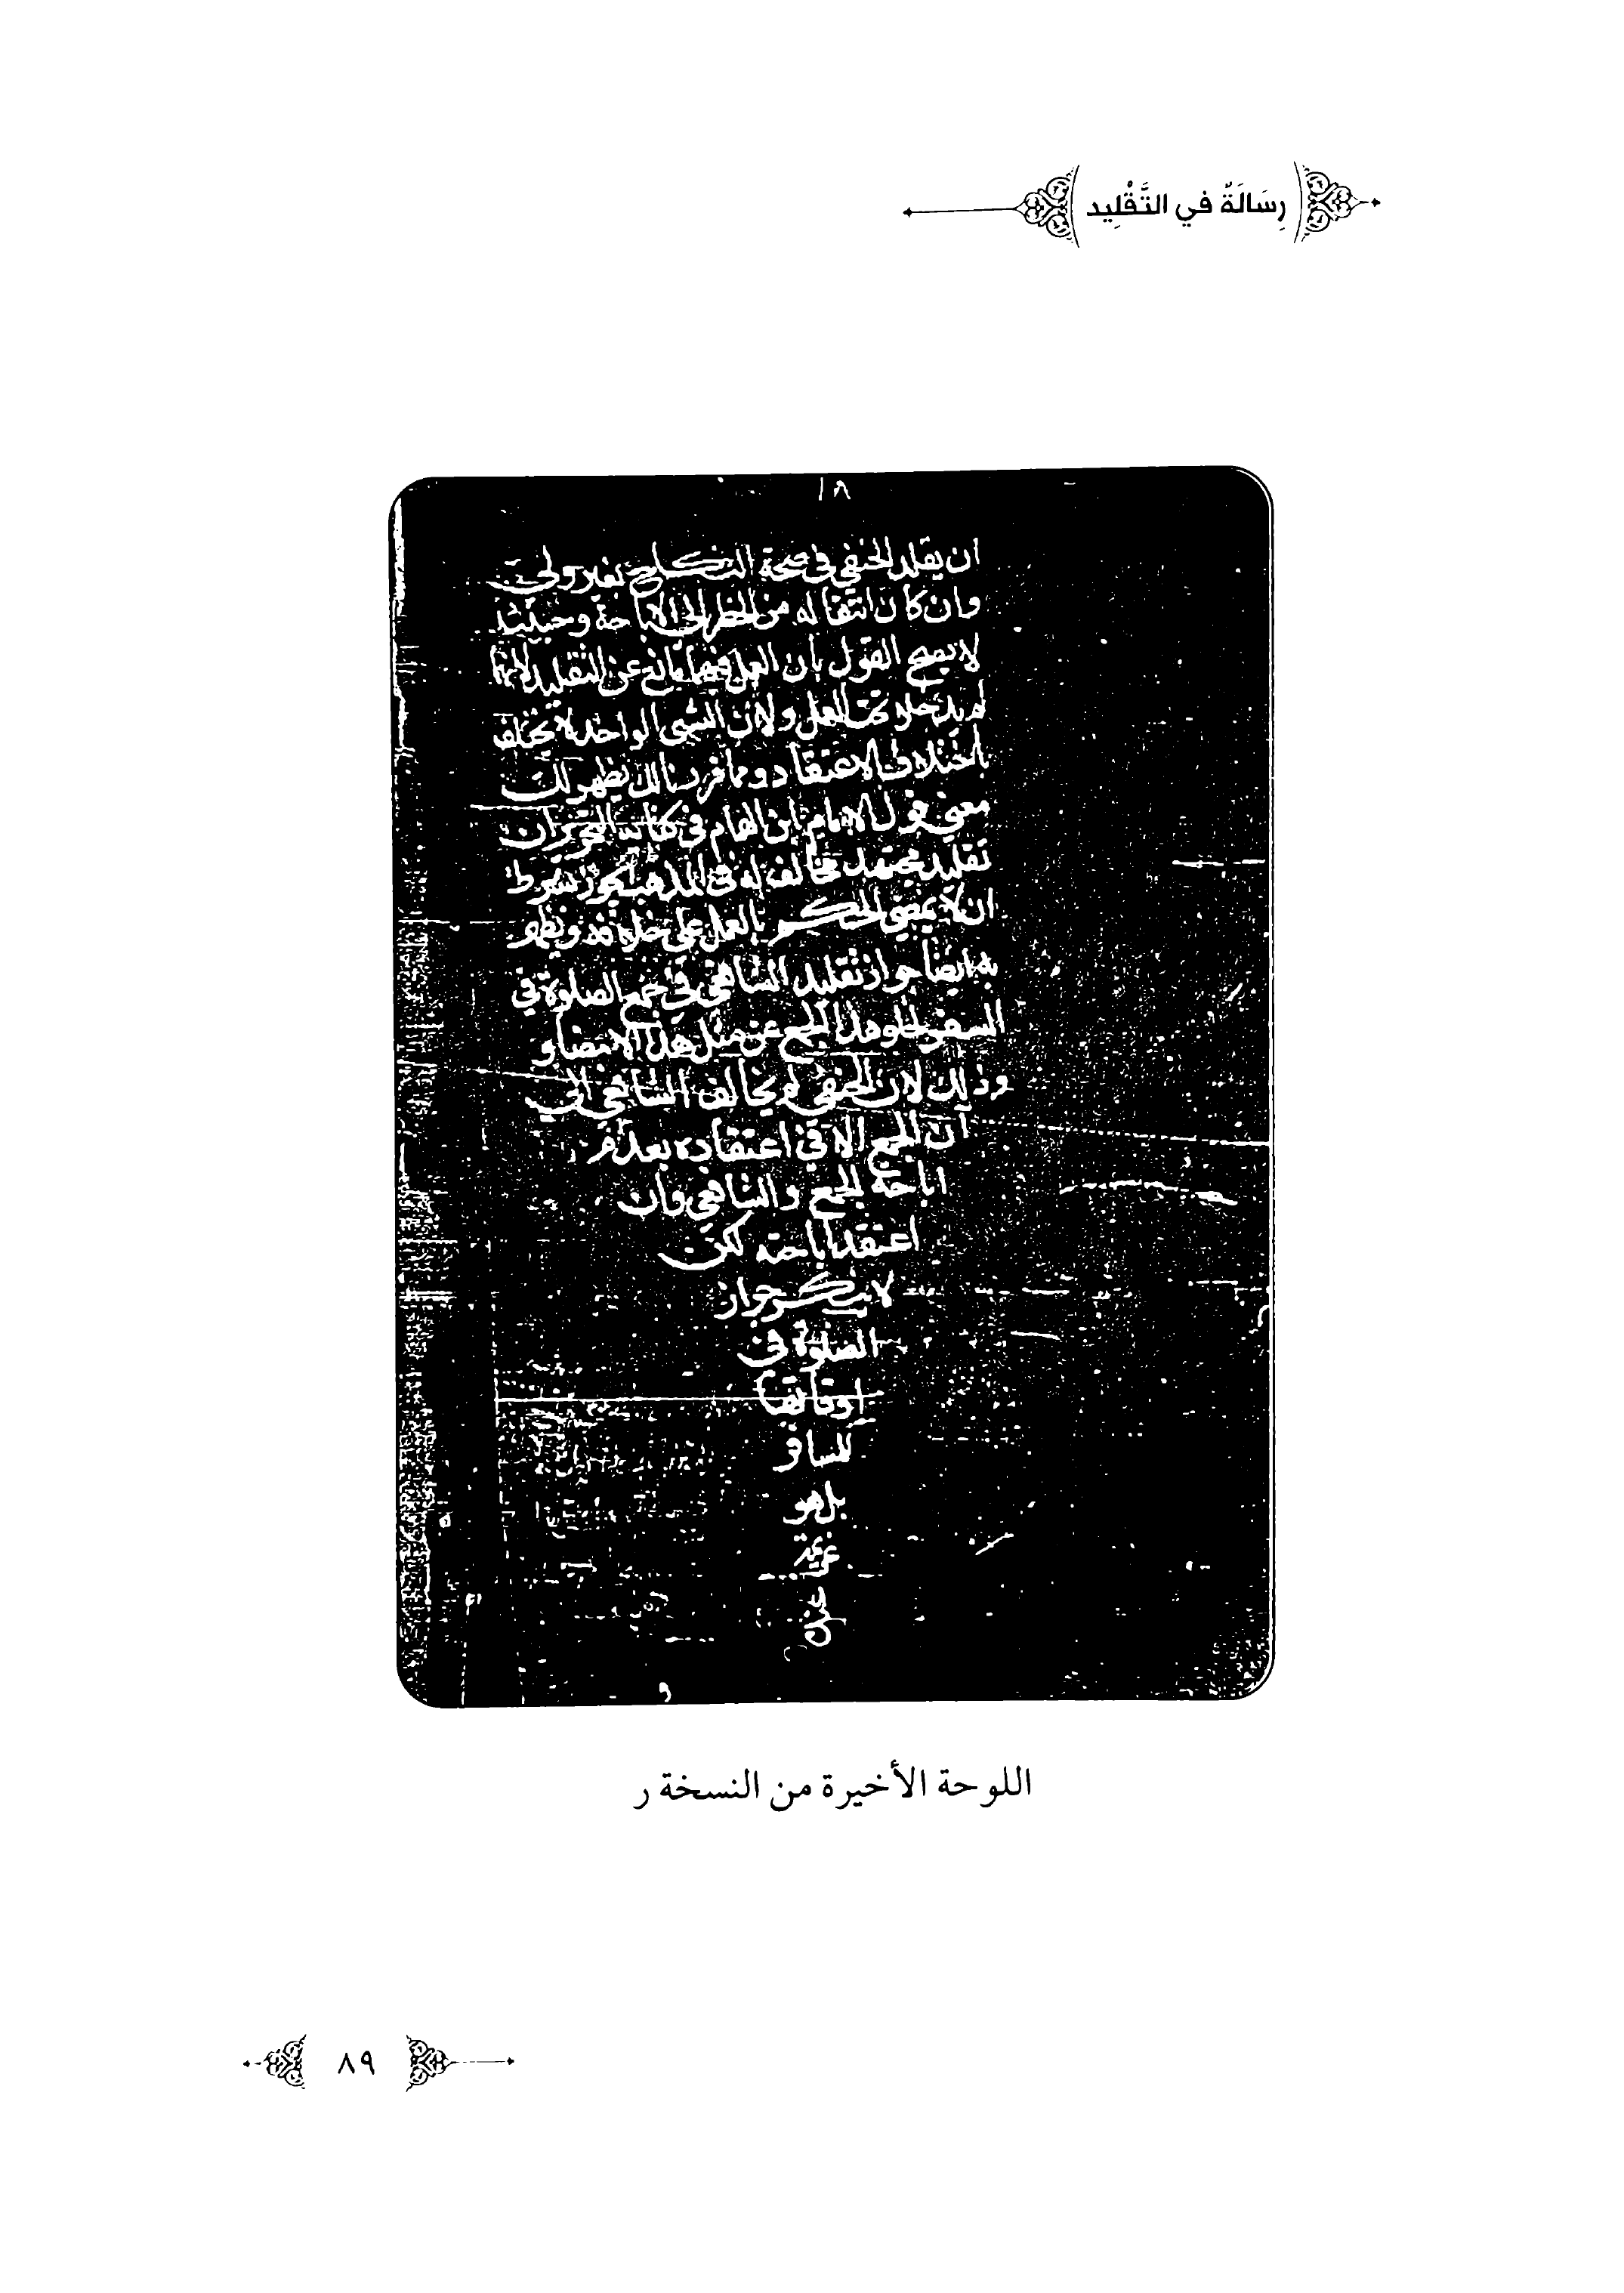 رِسَالَةٌ في التَّقْلِيد
١٨
ان يقلد الحنفي في صحة النكاح بغير ولي
وان كان انتقاله من الحظر الى الاباحة وحينئذ
لا يصح القول بان العمل فيهما مانع عن التقليد لانهما
لم يدخلا تحت العمل ولان الشي الواحد لا يختلف
باختلاف الاعتقاد ومما قررنا لك يظهر لك
معنى قول الامام ابن الهام في كتابه التحرير ان
تقليد مجتهد مخالف له في المذهب يجوز بشرط
ان لا يمضي الحكم بالعمل على خلافه ويظهر
به ايضا جواز تقليد الشافعي في جمع الصلوة في
السفر لخلو هذا الجمع عن مثل هذا الامضاء
وذلك لان الحنفي لم يخالف الشافعي الى
آن الجمع الا في اعتقاده بعدم
اباحة الجمع والشافعي وان
اعتقد اباحته لكن
لا ينكر جواز
الصلوة في
اوقاتها
للمسافر
بل هو
عزيمة
اللوحة الأخيرة من النسخة ر
٨٩